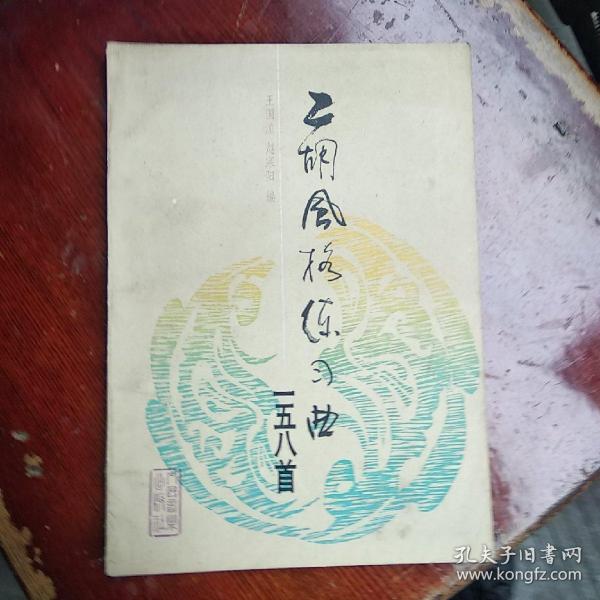 二胡风格练习曲
一五八首
王国潼 赵寒阳 编
孔夫子旧书网
www.kongfz.com